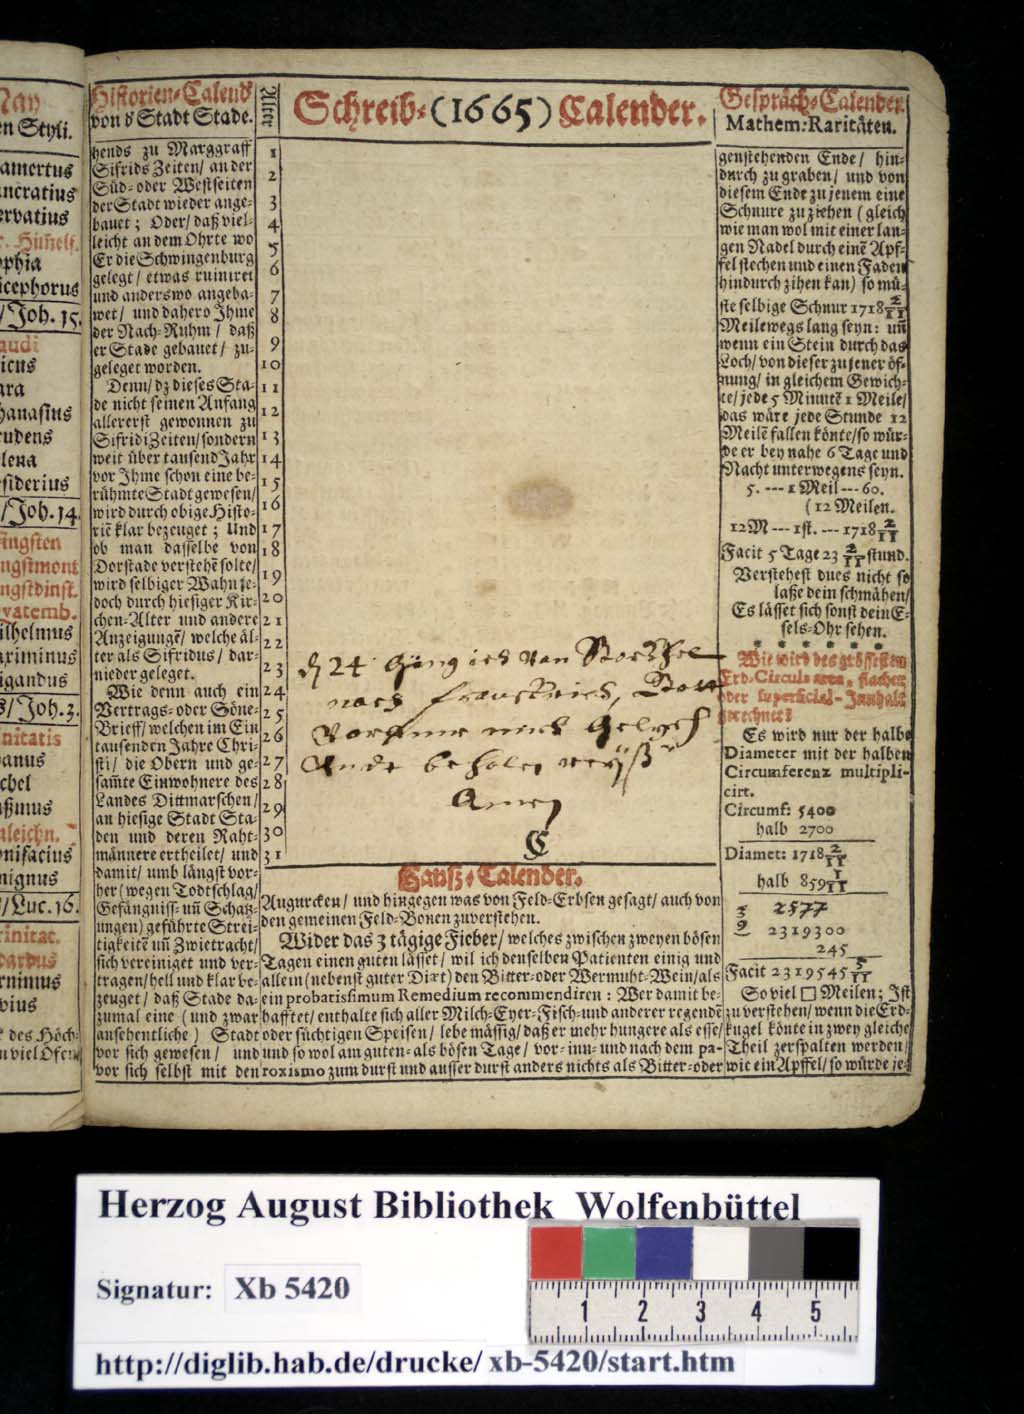 May
en Styli.
amertus
ancratius
ervatius
c. Him̄elf.
ophia
icephorus
/Joh. 15.
audi
icus
ara
hanasius
rudens
lena
siderius
/Joh. 14.
fingsten
ngstmont
ngstdinst.
vatemb.
ilhelmus
aximinus
igandus
s/Joh. 3.
nitatis
banus
chel
aßmus
aleichn.
onifacius
nignus
/Luc. 16.
rinitat.
dardus
rnimus
vius
t des Höch-
n viel Ofen/
Historien-Calend
von d' Stadt Stade.
hends zu Marggraff
Sifrids Zeiten/ an der
Süd- oder Westseiten
der Stadt wieder ange-
bauet; Oder/ daß viel-
leicht an dem Ohrte wo
Er die Schwingenburg
gelegt/ etwas ruiniret
und anderswo angeba-
wet/ und dahero Ihme
der Nach-Ruhm/ daß
er Stade gebauet/ zu-
geleget worden.
Denn/ dz dieses Sta-
de nicht seinen Anfang
allererst gewonnen zu
Sifridi Zeiten/ sondern
weit über tausend Jahr
vor Ihme schon eine be-
rühmte Stadt gewesen/
wird durch obige Histo-
riē klar bezeuget; Und
ob man dasselbe von
Dorstade verstehē solte/
wird selbiger Wahn je-
doch durch hiesiger Kir-
chen-Alter und andere
Anzeigungē/ welche äl-
ter als Sifridus/ dar-
nieder geleget.
Wie denn auch ein
Vertrags- oder Söne-
Brieff/ welchen im Ein
tausenden Jahre Chri-
sti/ die Obern und ge-
sam̄te Einwohnere des
Landes Dittmarschen/
an hiesige Stadt Sta-
den und deren Raht-
männere ertheilet/ und
damit/ umb längst vor-
her (wegen Todtschlag/
Gefängniss- uñ Schatz-
ungen) geführte Strei-
tigkeitē uñ Zwietracht/
sich vereiniget und ver-
tragen/ hell und klar be-
zeuget/ daß Stade da-
zumal eine (und zwar
ansehentliche) Stadt
vor sich gewesen/ und
vor sich selbst mit den
Alter
1
2
3
4
5
6
7
8
9
10
11
12
13
14
15
16
17
18
19
20
21
22
23
24
25
26
27
28
29
30
31
Schreib-(1665) Calender.
24
Amen
Hauß-Calender.
Augurcken/ und hingegen was von Feld-Erbsen gesagt/ auch von
den gemeinen Feld-Bonen zuverstehen.
Wider das 3 tägige Fieber/ welches zwischen zweyen bösen
Tagen einen guten lässet/ wil ich denselben Patienten einig und
allein (nebenst guter Diæt) den Bitter- oder Wermuht-Wein/ als
ein probatissimum Remedium recommendiren: Wer damit be-
hafftet/ enthalte sich aller Milch-Eyer-Fisch- und anderer regendē
oder süchtigen Speisen/ lebe mässig/ daß er mehr hungere als esse/
und so wol am guten- als bösen Tage/ vor- inn- und nach dem pa-
roxismo zum durst und ausser durst anders nichts als Bitter- oder
Gespräch-Calender.
Mathem: Raritäten.
genstehenden Ende/ hin-
durch zu graben/ und von
diesem Ende zu jenem eine
Schnure zu ziehen (gleich
wie man wol mit einer lan-
gen Nadel durch einē Apf-
fel stechen und einen Faden
hindurch zihen kan) so mü-
ste selbige Schnur 1718 2/11
Meilewegs lang seyn: uñ
wenn ein Stein durch das
Loch/ von dieser zu jener öf-
nung/ in gleichem Gewich-
te/ jede 5 Minutē 1 Meile/
das wäre jede Stunde 12
Meilē fallen könte/ so wür-
de er bey nahe 6 Tage und
Nacht unterwegens seyn.
5. --- 1 Meil --- 60.
(12 Meilen.
12 M --- 1 st. --- 1718 2/11
Facit 5 Tage 23 2/11 stund.
Verstehest dues nicht so
laße dein schmähen/
Es lässet sich sonst dein E-
sels-Ohr sehen.
* * * * * *
Wie wird des grössesten
Erd-Circuls area, flachen
oder superficial-Innhalt
gerechnet?
Es wird nur der halbe
Diameter mit der halben
Circumferenz multipli-
cirt.
Circumf: 5400
halb 2700
Diamet: 1718 2/11
halb 859 1/11
2577
2319300
245
Facit 2319545 5/11
So viel □ Meilen; Ist
zu verstehen/ wenn die Erd-
kugel könte in zwey gleiche
Theil zerspalten werden/
wie ein Apffel/ so würde je-
Herzog August Bibliothek Wolfenbüttel
Signatur: Xb 5420
1 2 3 4 5
http://diglib.hab.de/drucke/xb-5420/start.htm